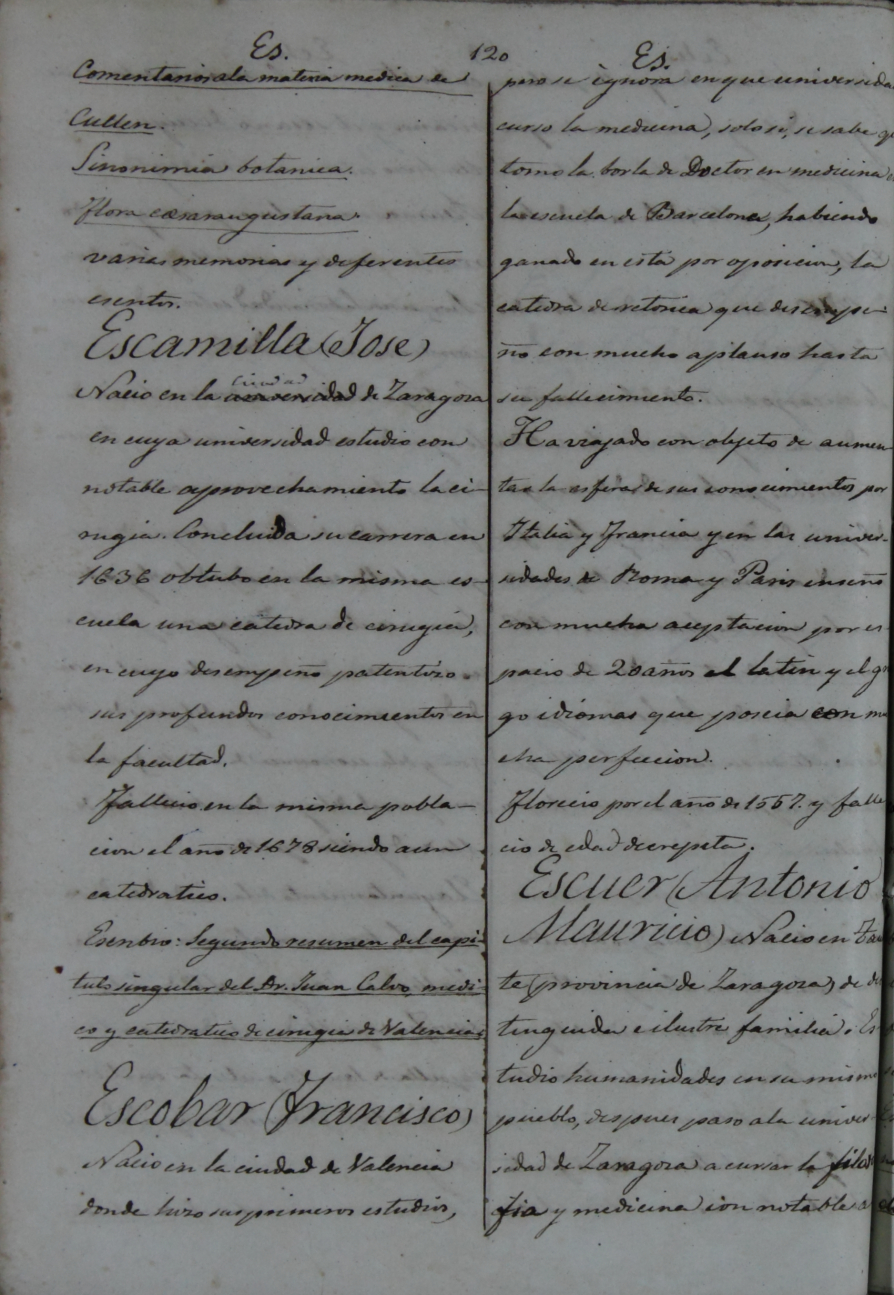 Es.
120
Es.
Comentarios a la materia medica de
Cullen.
Sinonimia botanica.
Flora cæsaraugustana.
varias memorias y diferentes
escritos.
Escamilla (Jose)
Nacio en la ciudad de Zaragoza
en cuya universidad estudio con
notable aprovechamiento la ci-
rugia. Concluida su carrera en
1636 obtubo en la misma es-
cuela una catedra de cirugia,
en cuyo desempeño patentizo
sus profundos conocimientos en
la facultad.
Fallecio en la misma pobla-
cion el año de 1678 siendo aun
catedratico.
Escribio: Segundo resumen del capi-
tulo singular del Dr. Juan Calvo, medi-
co y catedratico de cirugia de Valencia.
Escobar (Francisco)
Nacio en la ciudad de Valencia
donde hizo sus primeros estudios,
pero se ignora en que universida
curso la medicina, solo si, se sabe q
tomo la borla de Doctor en medicina
la escuela de Barcelona, habiendo
ganado en esta por oposicion, la
catedra de retorica que desempe-
ño con mucho aplauso hasta
su fallecimiento.
Ha viajado con objeto de aumen
tar la esfera de sus conocimientos por
Italia y Francia y en las univer-
sidades de Roma y Paris enseño
con mucha aceptacion por es-
pacio de 20 años el latin y el g
go idiomas que poseia con mu
cha perfeccion.
Florecio por el año de 1557. y falle
cio de edad decrepita.
Escuer (Antonio
Mauricio) Nacio en Tau
te (provincia de Zaragoza) de di
tinguida e ilustre familia. Es
tudio humanidades en su mismo
pueblo, despues paso a la univer-
sidad de Zaragoza a cursar la filoso
fia y medicina con notable a